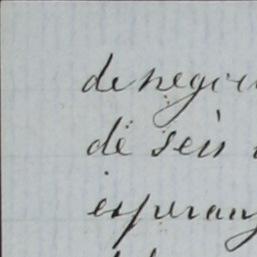 de negoci
de seis
esperan